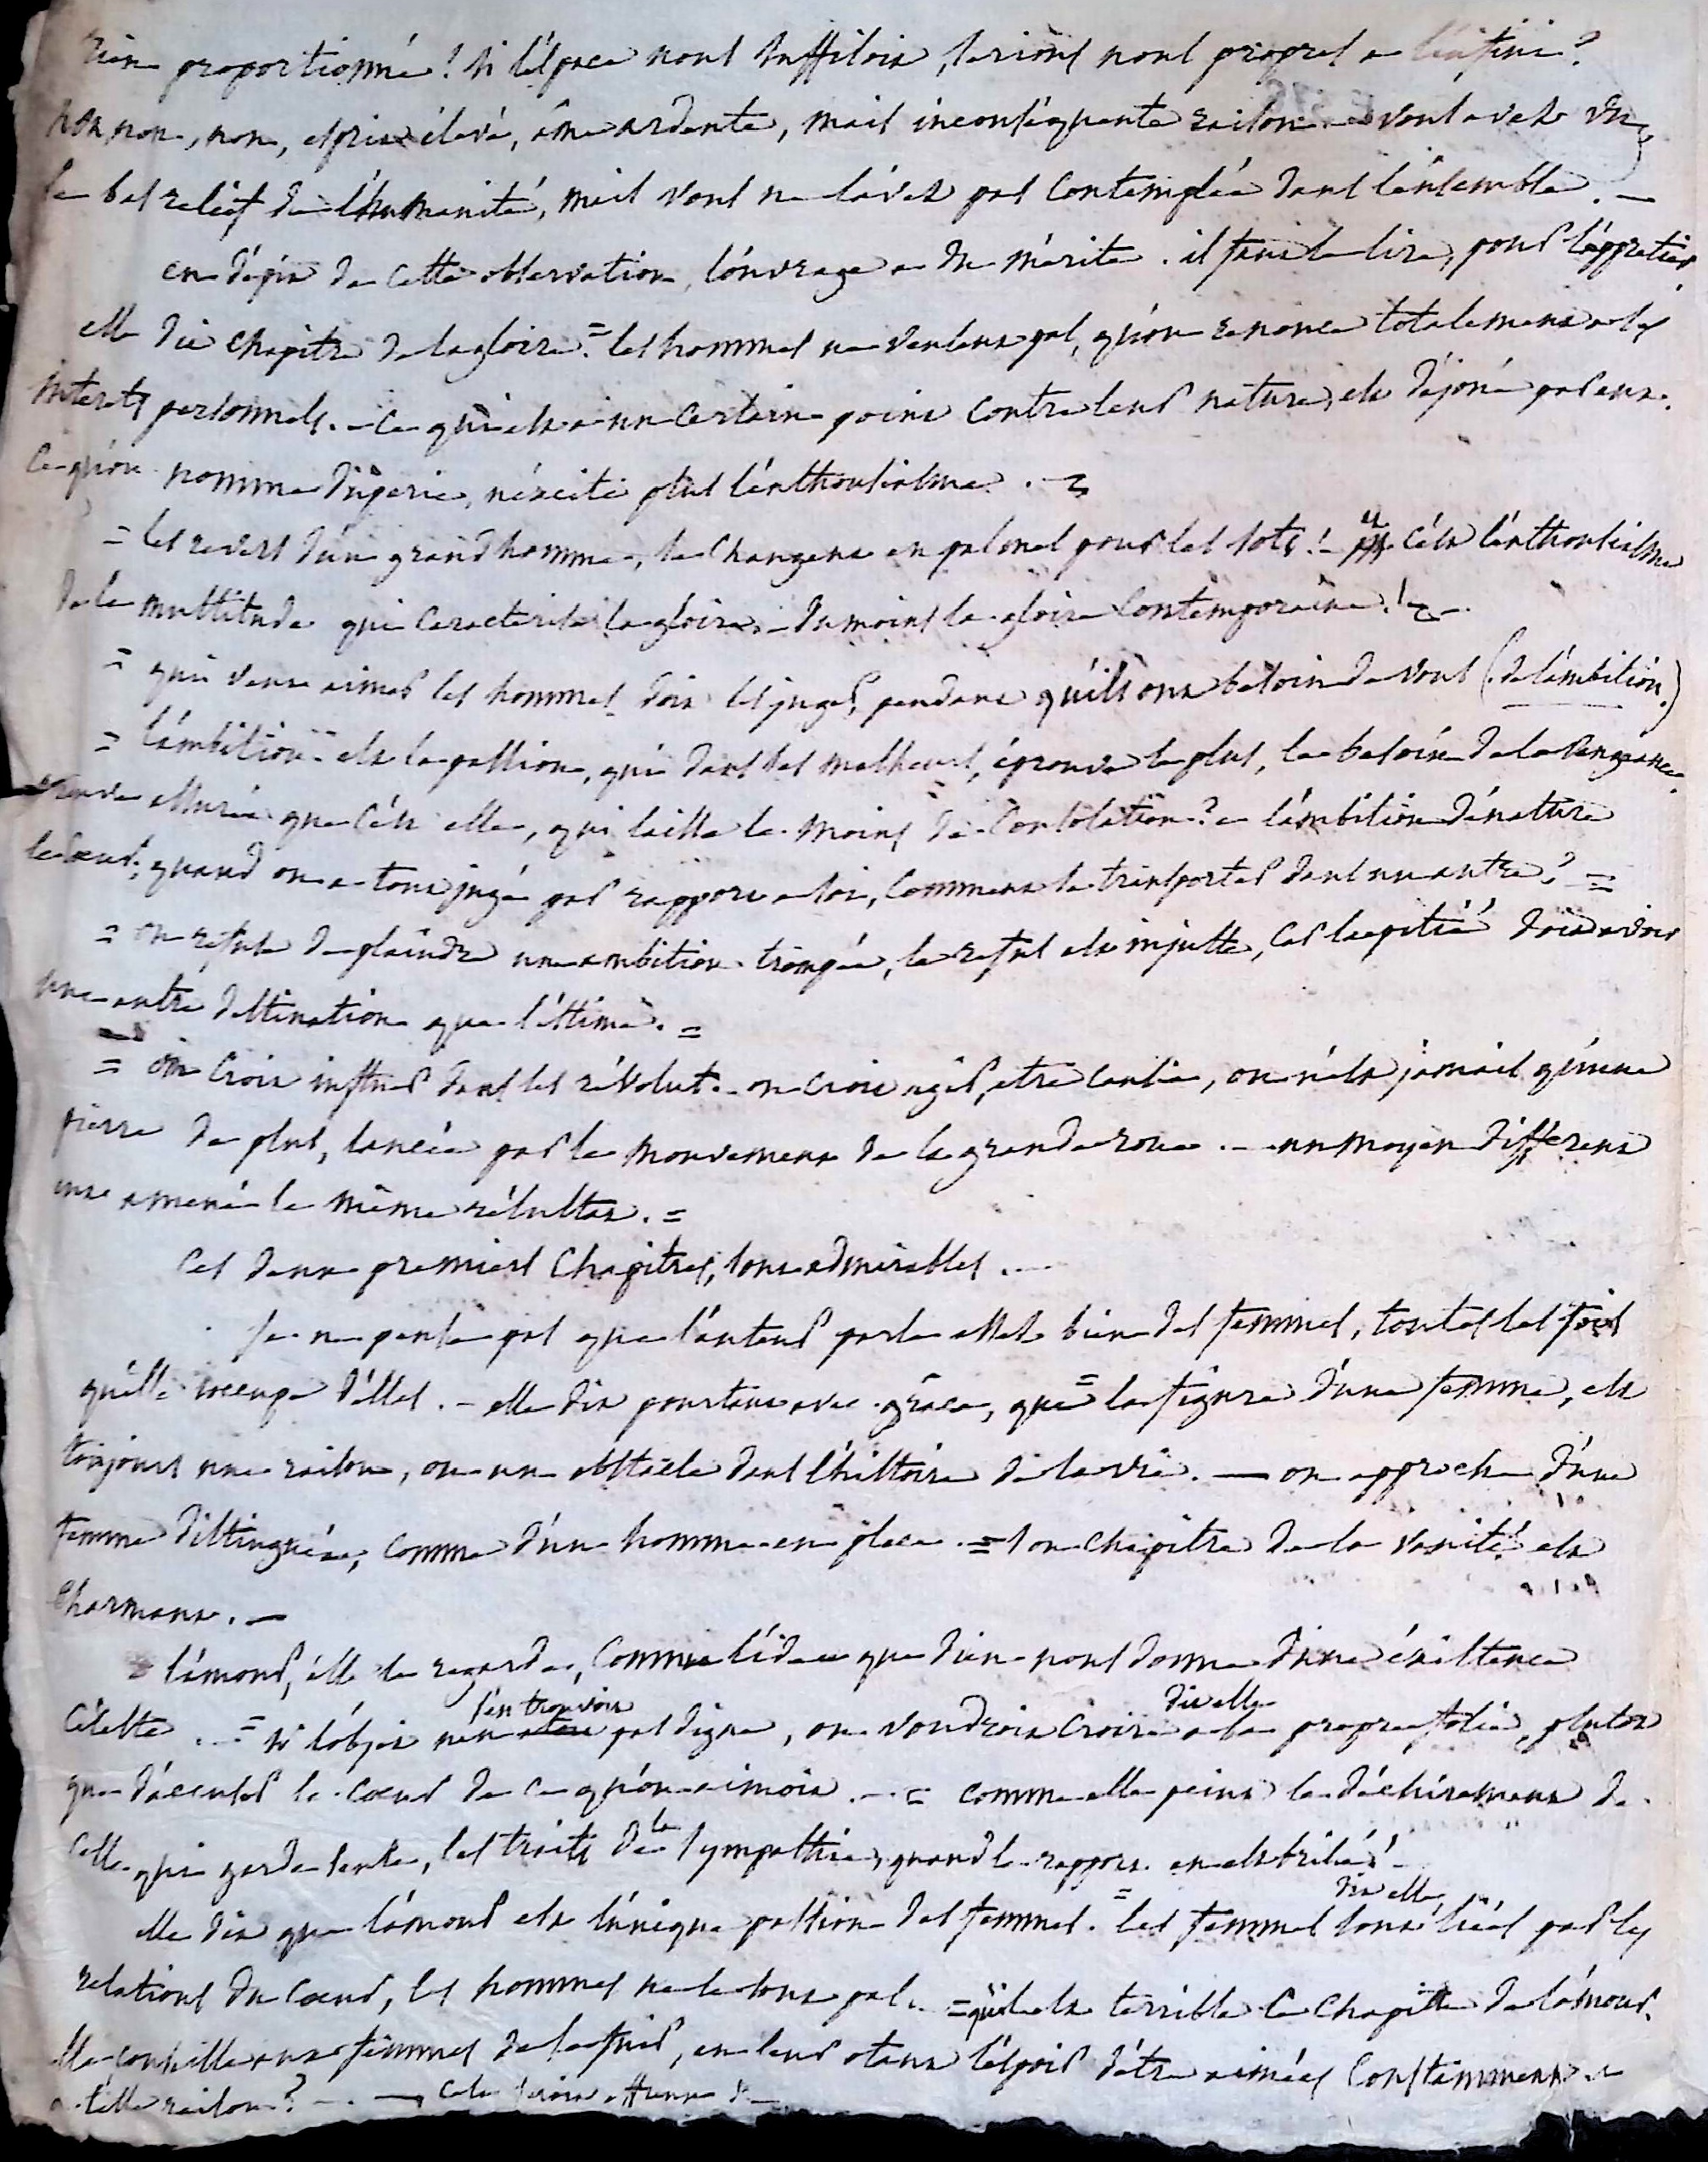 rien proportionné! si l'éspace nous suffisoit, serions nous propres a l'infini?
non, non, non, esprit élevé, âme ardente, mais inconséquente raison vous avez vu,
le bas relief de l'humanité, mais vous ne l'avez pas contemplée dans l'énsemble. —
en dépit de cette observation, l'ouvrage a du mérite. il faut le lire, pour l'apprétier.
elle dit chapitre de la gloire. = les hommes ne veulent pas, qu'on renonce totalement a ses
interets personnels. - ce qui est a un certain point contre leur nature, est déjoué par eux.
ce qu'on nomme duperie, n'éxcite plus l'énthousiasme. -
= les revers d'un grand homme, se changent en pour les sots! - c'ést l'énthousiasme
de la multitude qui caractérise la gloire, - du moins la gloire contemporaine! -
= qui veut aimer les hommes doit les juger, pendant qu'ils ont besoin de vous (de l'ambition.)
= l'ambition est la passion, qui dans ses malheurs, éprouve le plus, le besoin de la vengeance.
preuve assurée que c'ést elle, qui laisse le moins de consolation? - l'ambition dénature
le cœur, quand on a tout jugé par rapport a soi, comment se transporter dans un autre? =
= on refuse de plaindre une ambition trompée, ce refus est injuste, car la pitié doit avoir
une autre destination que l'éstime. =
= on croit influer dans les révolut. - on croit agir, etre cause, on n'est jamais qu'une
pierre de plus, lancée par le mouvement de la grande roue. - un moyen different
eut amené le même résultat. =
ces deux premiers chapitres, sont admirables. -
Je ne pense pas que l'auteur parle assez bien des femmes, toutes les fois
qu'elle s'occupe d'elles. - elle dit pourtant avec grâce, que = la figure d'une femme, est
toujours une raison, ou un obstacle dans l'histoire de la vie. — on approche d'une
femme distinguée, comme d'un homme en place. = son chapitre de la vanité est
charmant. —
l'amour, elle le regarde, comme l'idée que dieu nous donne d'une éxistence
céleste. - = si l'objet s'en trouvoit pas digne, on voudroit croire dit elle a sa propre folie, plutot
que d'accuser le cœur de ce qu'on aimoit. - = comme elle peint le déchirement de
celle qui garde seule, les traits de la sympathie, quand le rapport en est brisé! -
elle dit que l'amour est l'unique passion des femmes. = les femmes dit elle sont liées par les
relations du cœur, les hommes ne le sont pas. = qu'il est terrible ce chapitre de l'amour.
elle conseille aux femmes de le fuir, en leur otant l'éspoir d'être aimées constamment. -
a-t-elle raison? - — cela seroit affreux